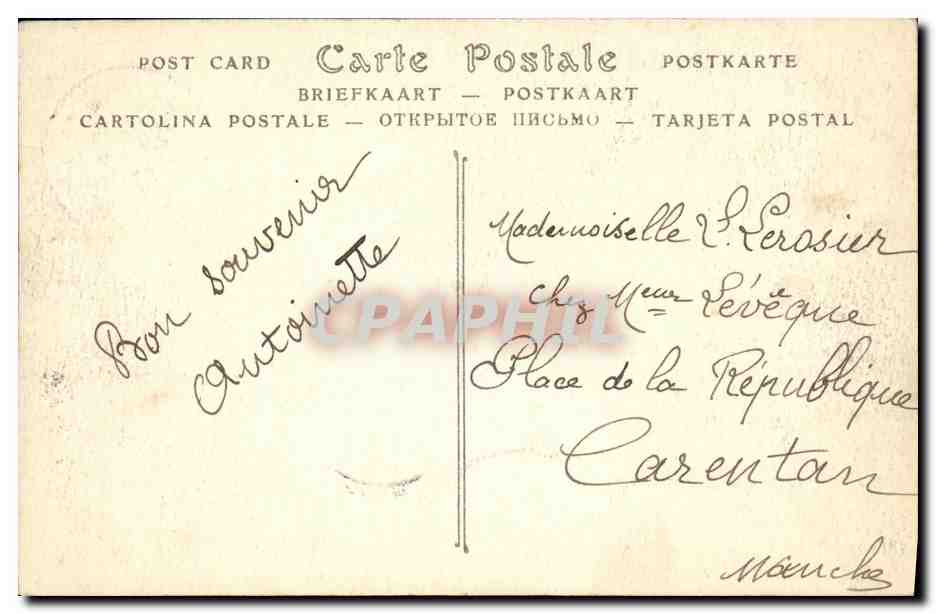 POST CARD Carte Postale POSTKARTE
BRIEFKAART — POSTKAART
CARTOLINA POSTALE — ОТКРЫТОЕ ПИСЬМО — TARJETA POSTAL
Bon souvenir
Antoinette
Mademoiselle L. Lerosier
chez Meur Lévêque
Place de la République
Carentan
Manche
CPAPHIL